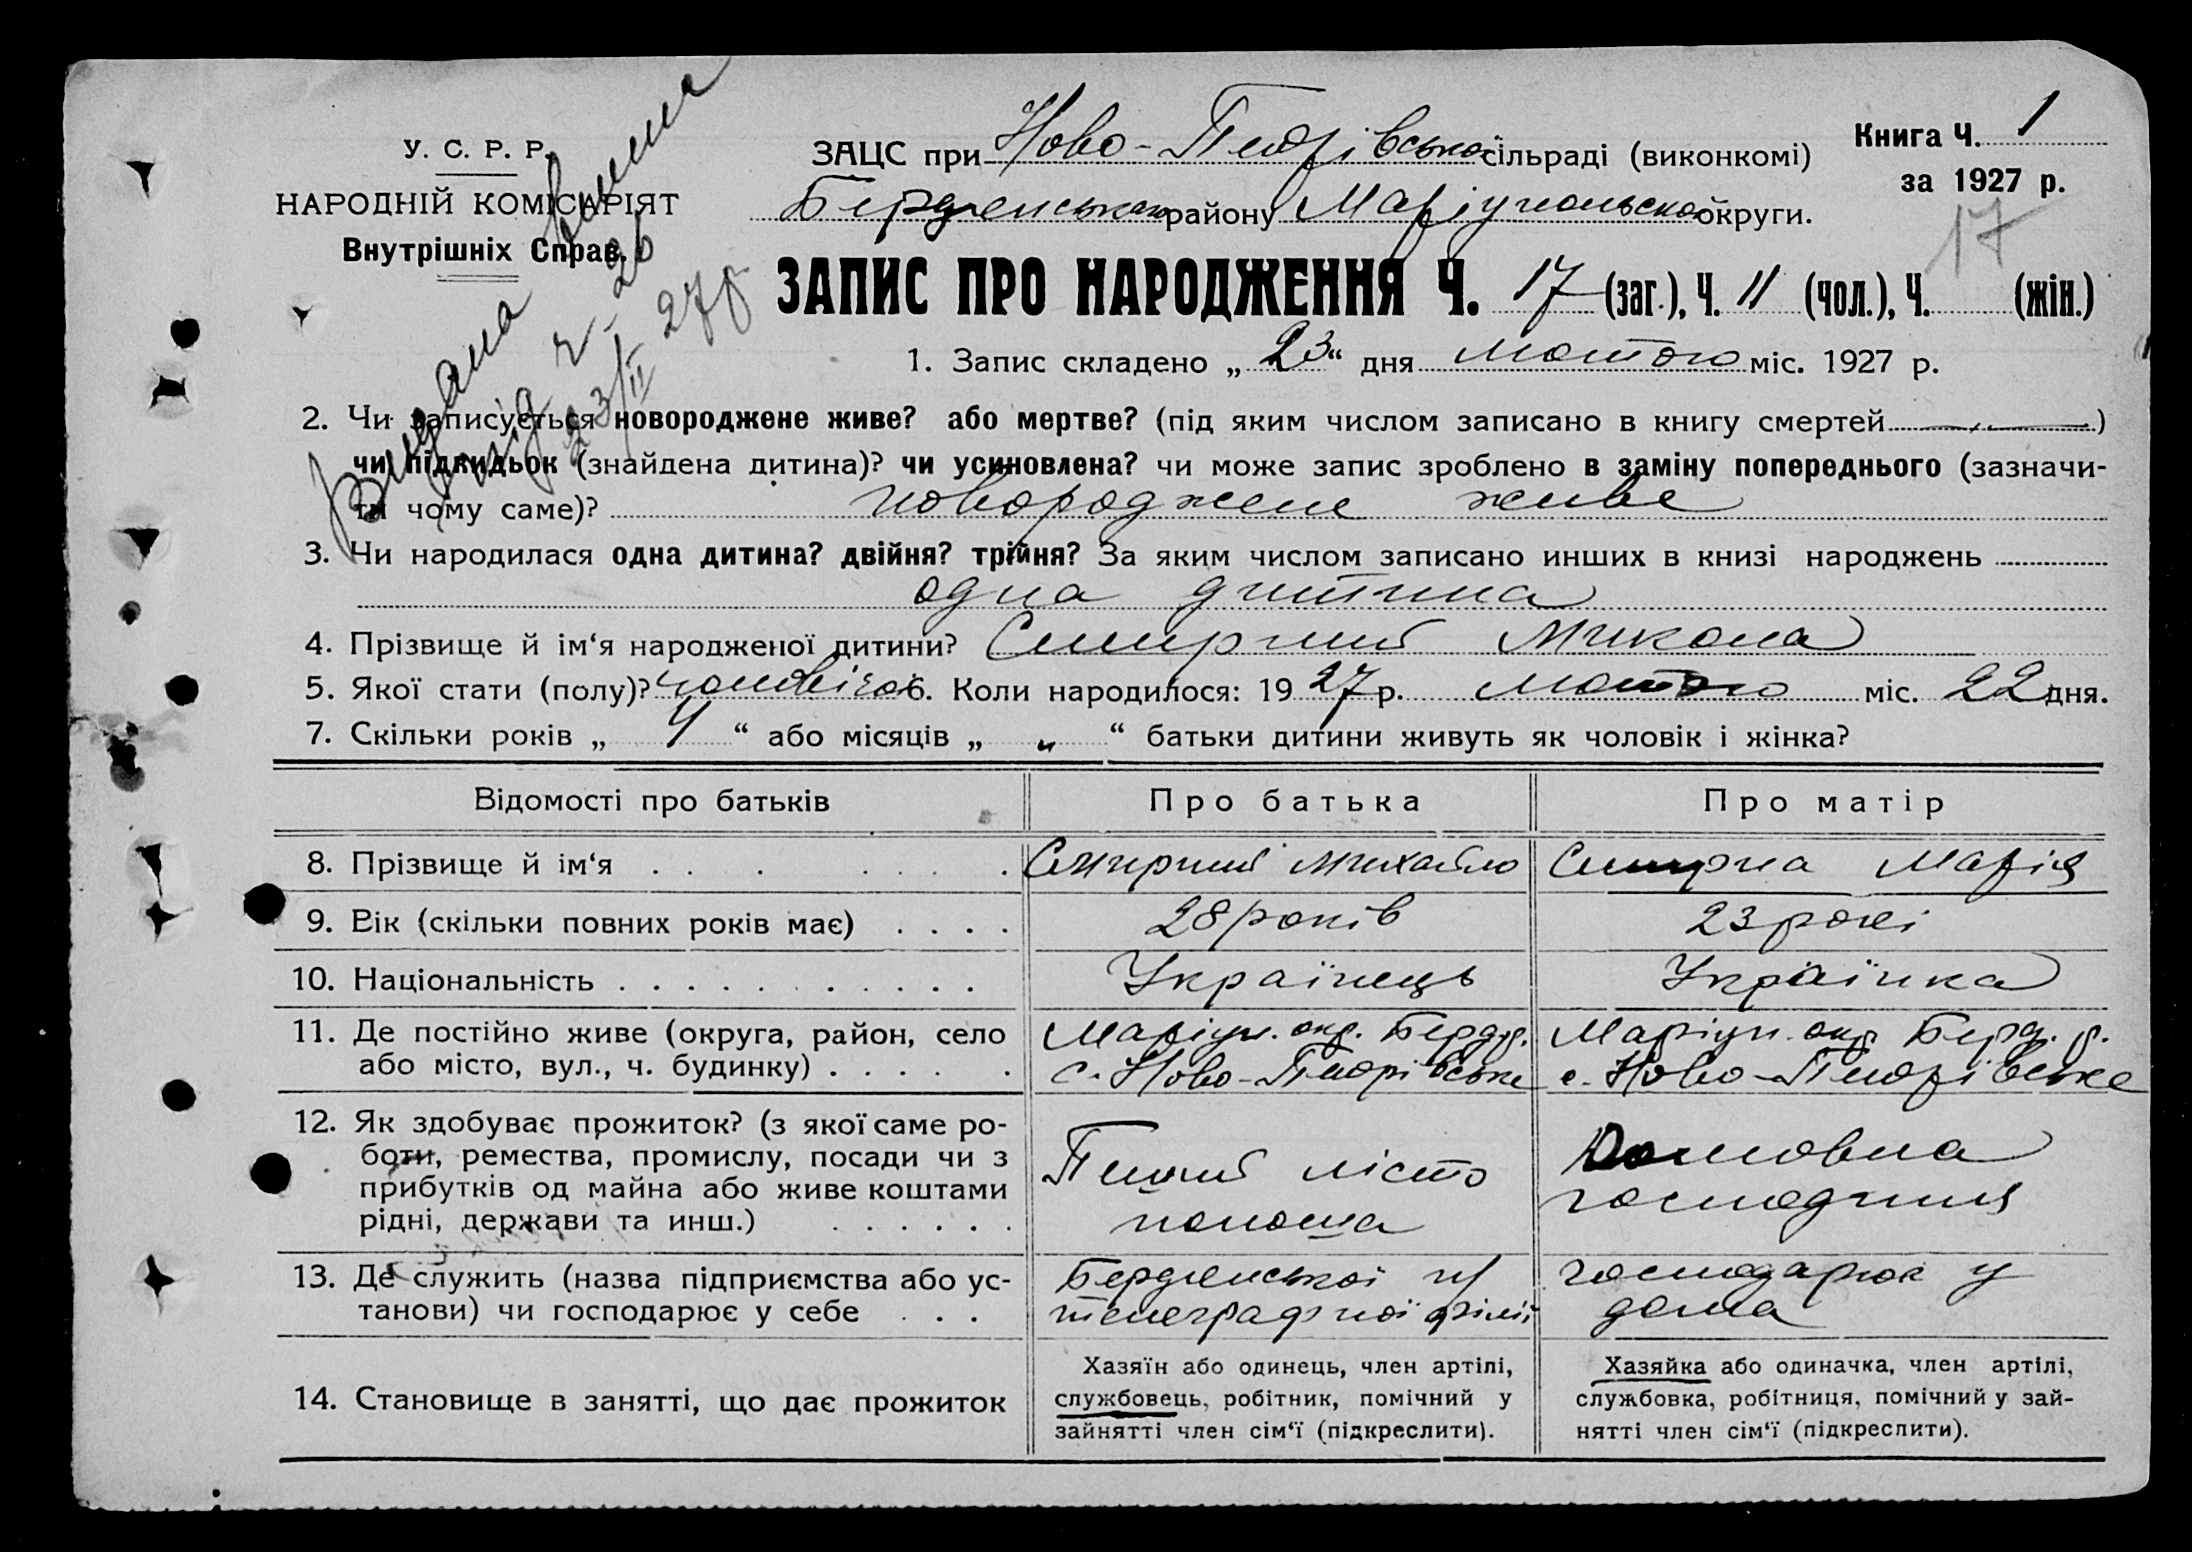 У. С. Р. Р.
НАРОДНІЙ КОМІСАРІЯТ
Внутрішніх Справ.
Видана виписка
під ч. 26
23/II 27 р
ЗАЦС при Ново-Петрівської сільраді (виконкомі)
Бердянського району Маріупольської округи.
Книга Ч. 1
за 1927 р.
17
ЗАПИС ПРО НАРОДЖЕННЯ Ч. 17 (заг.), Ч. 11 (чол.), Ч. (жін.)
1. Запис складено „ 23 “ дня лютого міс. 1927 р.
2. Чи записується новороджене живе? або мертве? (під яким числом записано в книгу смертей — „ — )
чи підкидьок (знайдена дитина)? чи усиновлена? чи може запис зроблено в заміну попереднього (зазначи-
ти чому саме)? новороджене живе
3. Чи народилася одна дитина? двійня? трійня? За яким числом записано инших в книзі народжень
одна дитина
4. Прізвище й ім‘я народженої дитини? Смирний Микола
5. Якої стати (полу)? чоловічої 6. Коли народилося: 19 27 р. лютого міс. 22 дня.
7. Скільки років „ 4 “ або місяців „ „ “ батьки дитини живуть як чоловік і жінка?
Відомості про батьків Про батька Про матір
8. Прізвище й ім‘я Смирний Михайло Смирна Марія
9. Вік (скільки повних років має) 28 років 23 рокі
10. Національність Українець Українка
11. Де постійно живе (округа, район, село Маріуп. окр. Берд. р. Маріуп. окр. Берд. р.
або місто, вул., ч. будинку) с. Ново-Петрівське с. Ново-Петрівське
12. Як здобуває прожиток? (з якої саме ро-
боти, ремества, промислу, посади чи з Піший лісто Домовна
прибутків од майна або живе коштами ноша господиня
рідні, держави та инш.)
13. Де служить (назва підприємства або ус- Бердянської п/ господарює у
танови) чи господарює у себе телеграфної філії дома
14. Становище в занятті, що дає прожиток
Хазяїн або одинець, член артілі,
службовець, робітник, помічний у
зайнятті член сім‘ї (підкреслити).
Хазяйка або одиначка, член артілі,
службовка, робітниця, помічний у зай-
нятті член сім‘ї (підкреслити).